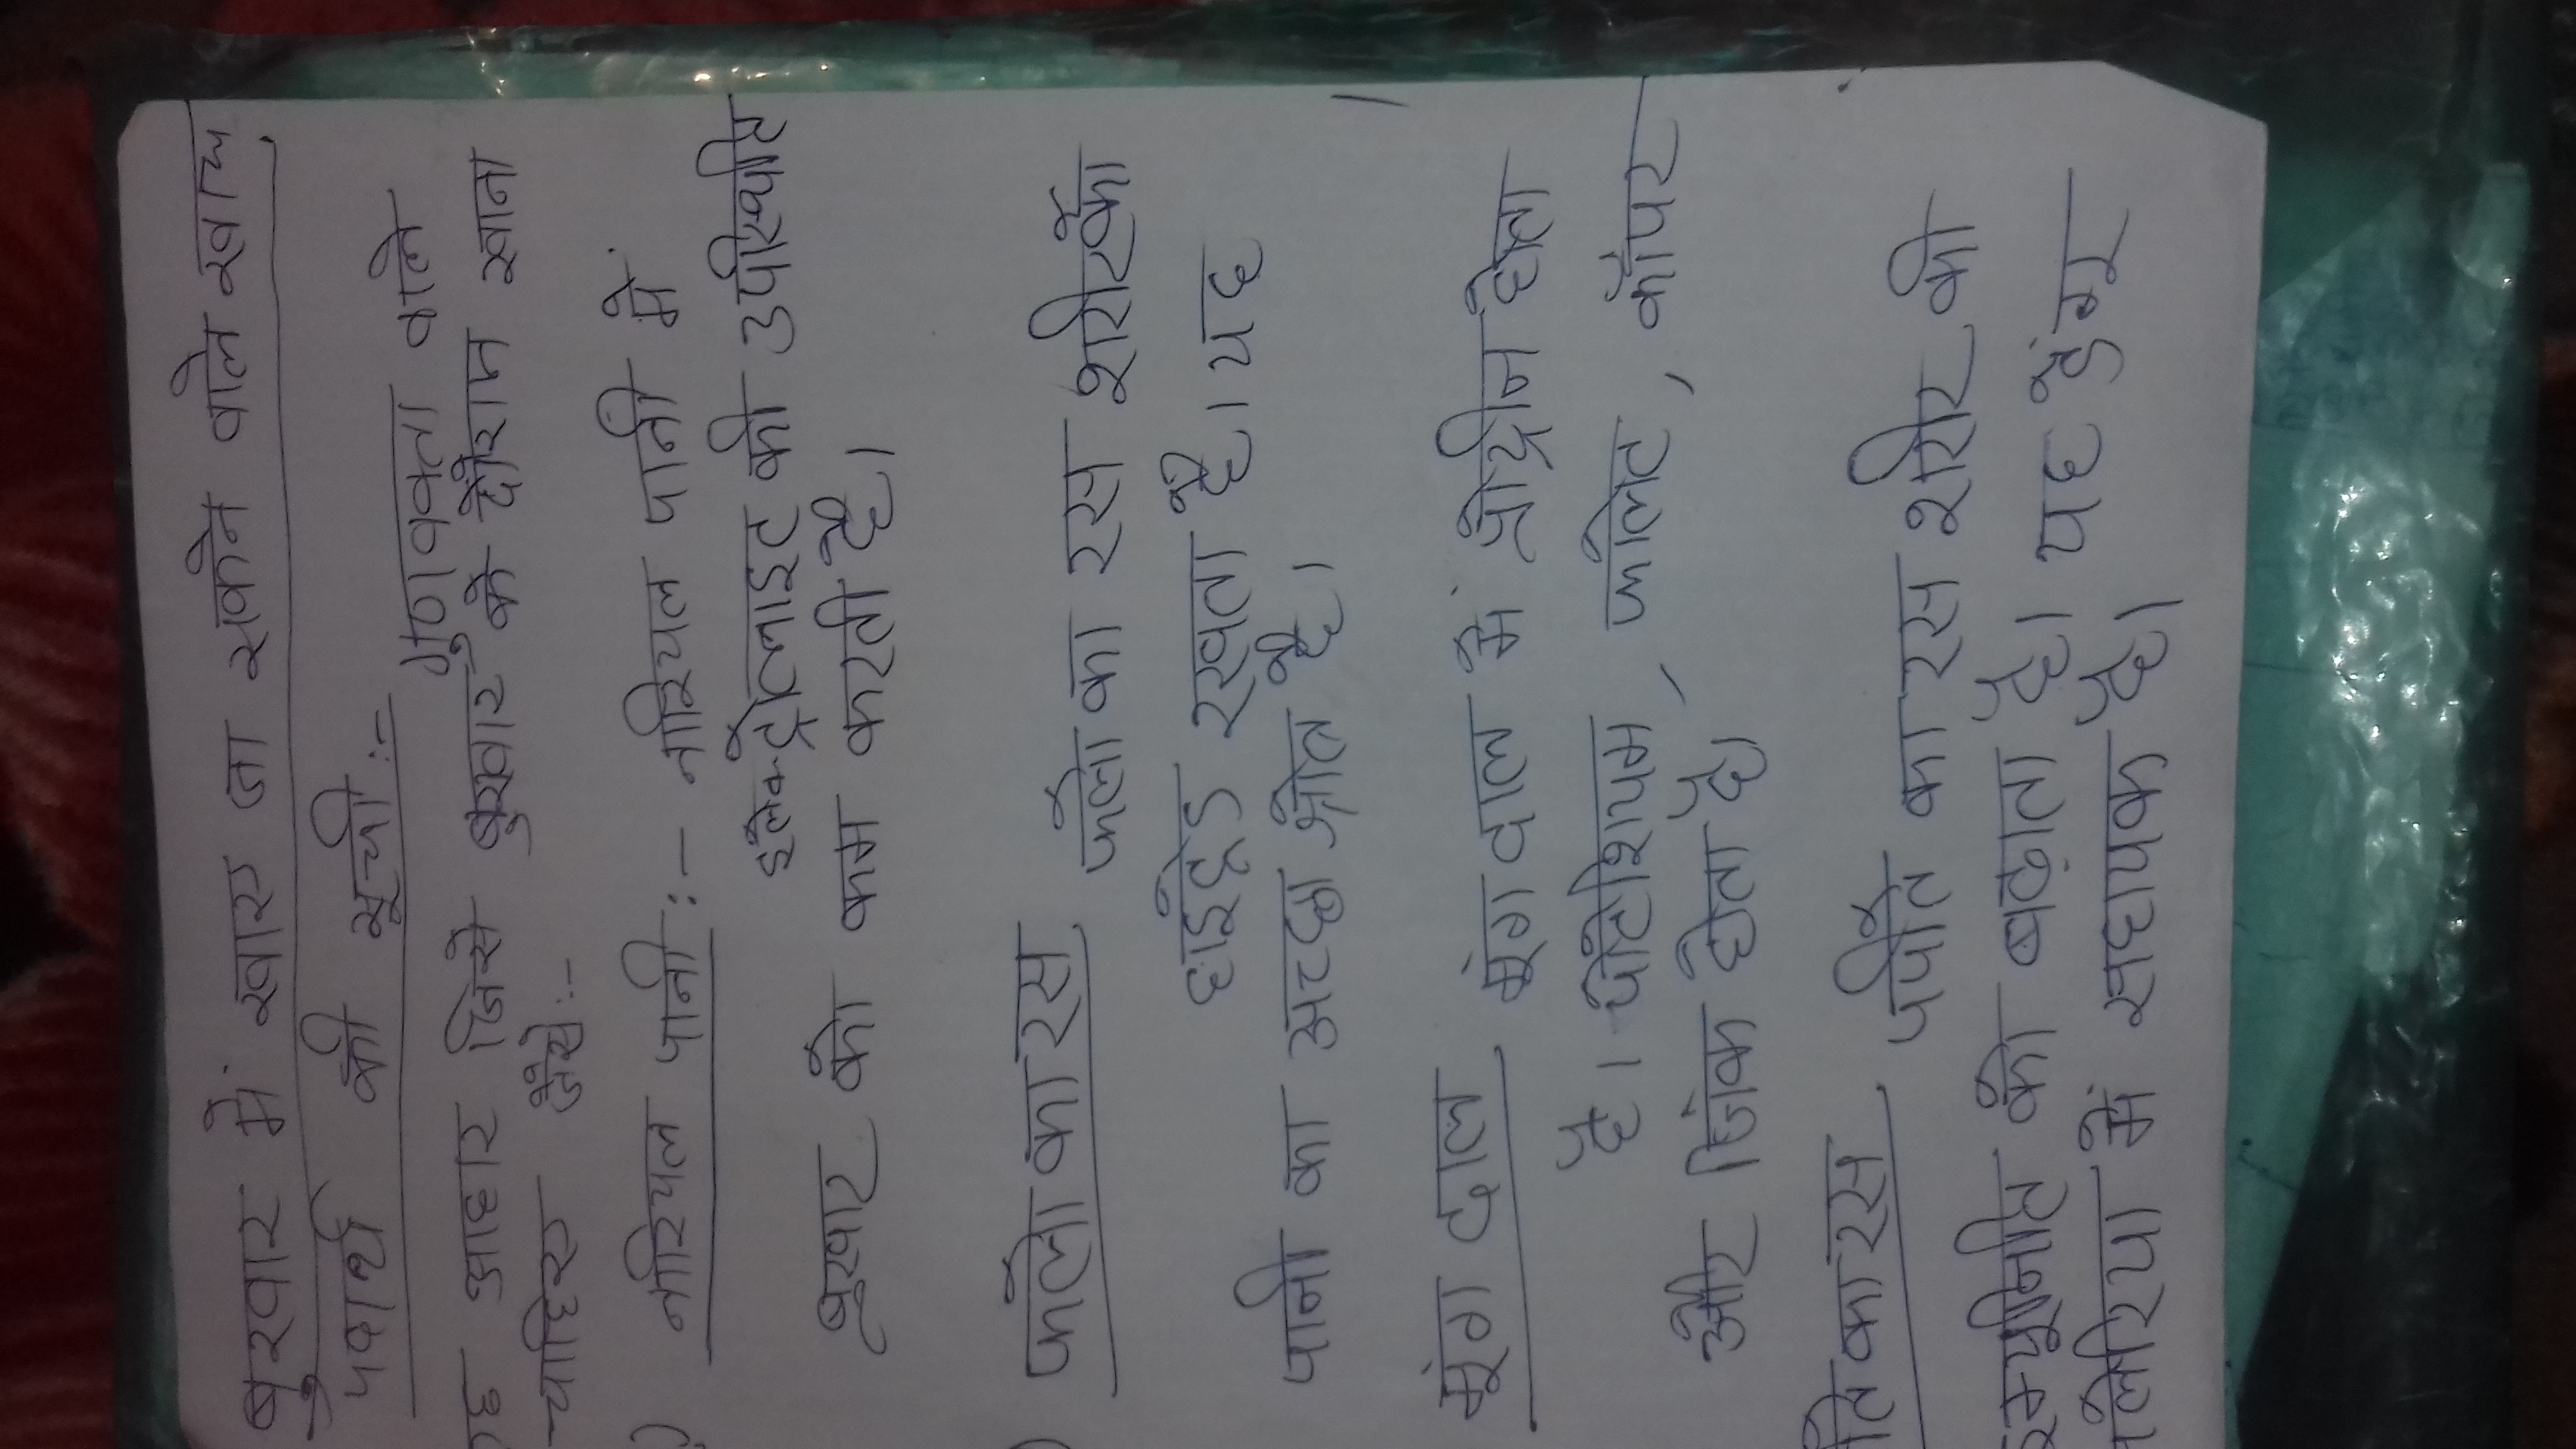 बुखार में खाए जा सकने वाले खाद्य
पदार्थ की सूची :-
आहार जिसे गुणवक्ता वाले
बुखार के दौरान खाना
चाहिए जैसे:-
नारियल पानी :- नारियल पानी में
इलेक्ट्रोलाइट की उपस्थिति
बुखार को कम करती है।
फलों का रस फलों का रस शरीर को
हाइड्रेड रखता है। यह
पानी का अच्छा स्रोत है।
मूंग दाल मूंग दाल में प्रोटीन होता
है। पोटेशियम, फोलेट, कॉपर
और जिंक होता है।
का रस पपीते का रस शरीर की
इम्युनिटी को बढ़ाता है। यह डेंगू
मलेरिया में सहायक है।